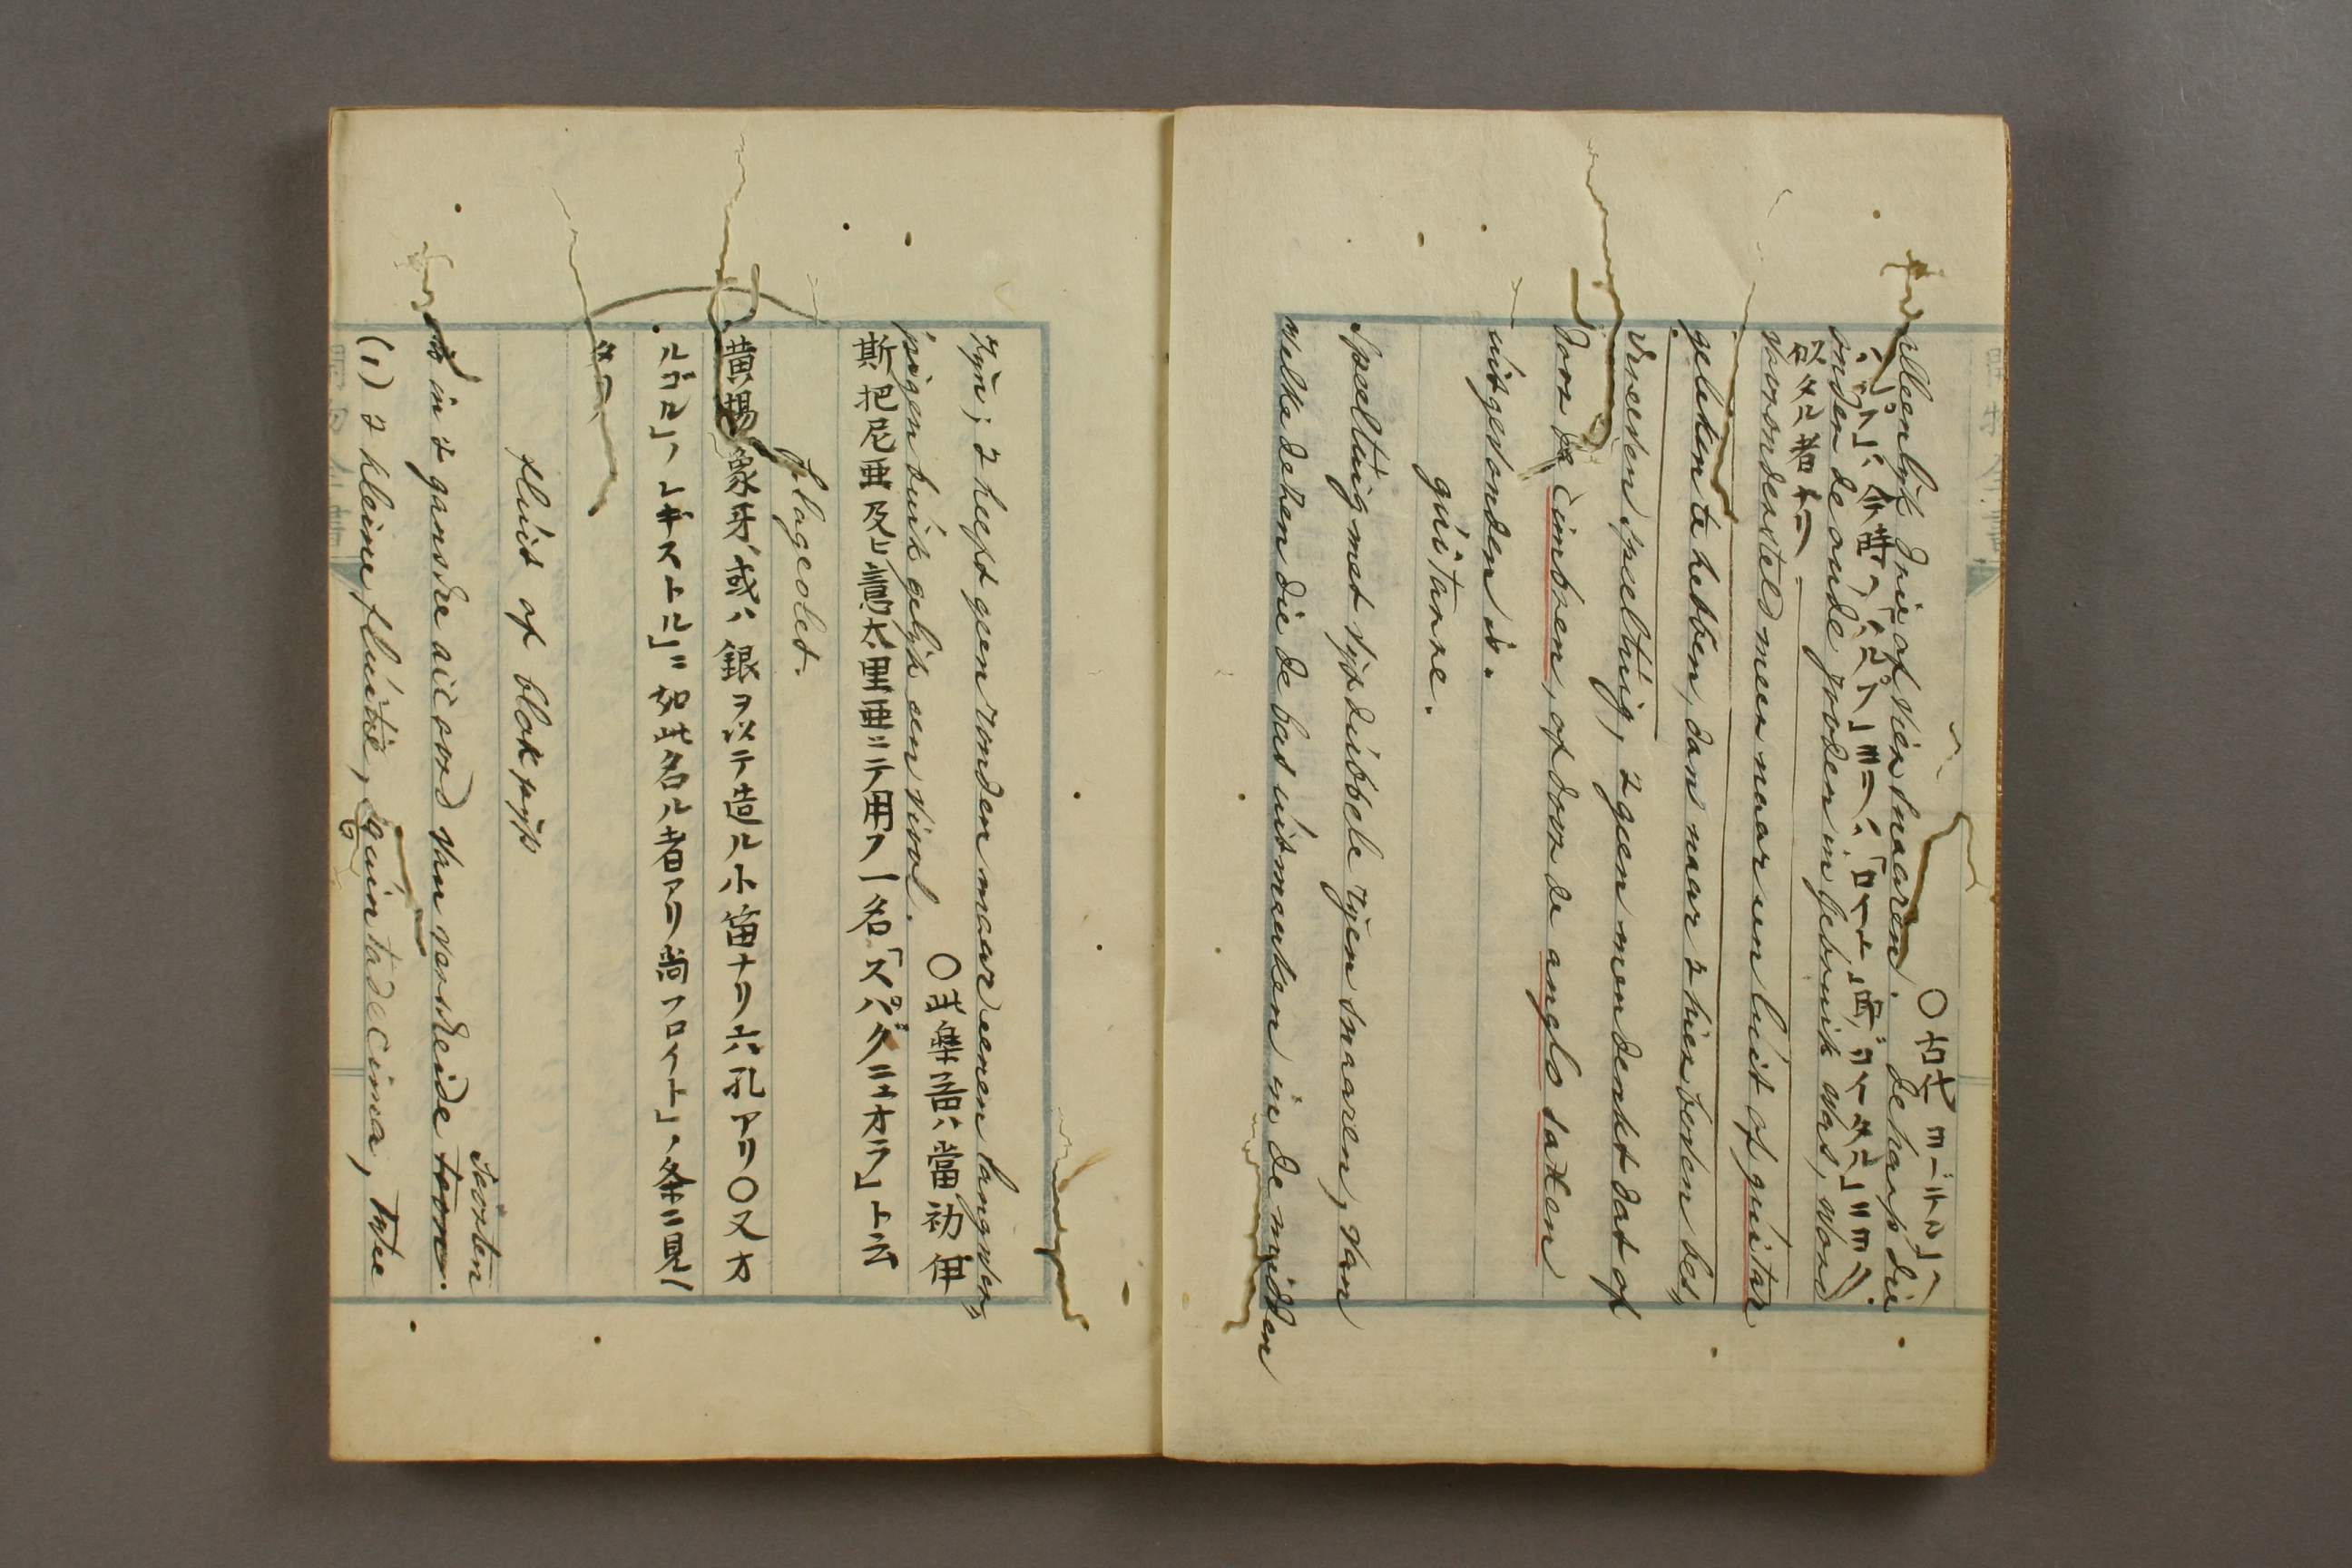 alleenlijk drie of vier snaaren. de harp die
○古代ヨーデン」ノ
ハルプ」ハ今時ノハルプ」ヨリハ「ロイト」或ギイタル」ニヨリ
onder de oude Jooden in gebruik was, word
似タル者ナリ
verondersteld meer naar een luit of guitar
geleken te hebben, dan naar 't hier boven bes,,
vreeven speeltuig, 't geen men denkt dat of
door de Cimbren, of door de anglo saxen
uitgevonden is.
guitarre.
Speeltuig met vijf dubbele rijen snaaren, van
welke de hen die de bas uitmaaken in de midden
zijn; 't heeft geen ronden maar eenen langwer,,
pigen buik gelijk een viool.
○此樂器ハ當初伊
斯把尼亜及ヒ意太里亜ニテ用フ一名「スパグニェオラ」ト云
flageolet.
黄楊象牙或ハ銀ヲ以テ造ル小笛ナリ六孔アリ○又オ
ルゴル」ノレギストル」ニ如此名ル者アリ尚フロイト」ノ条ニ見ヘ
タリ
fluit of blokpijp
is in 't gansche accoord van verscheide toon.
Soorten
(1) 't kleine fluitie, quintadecima, twee